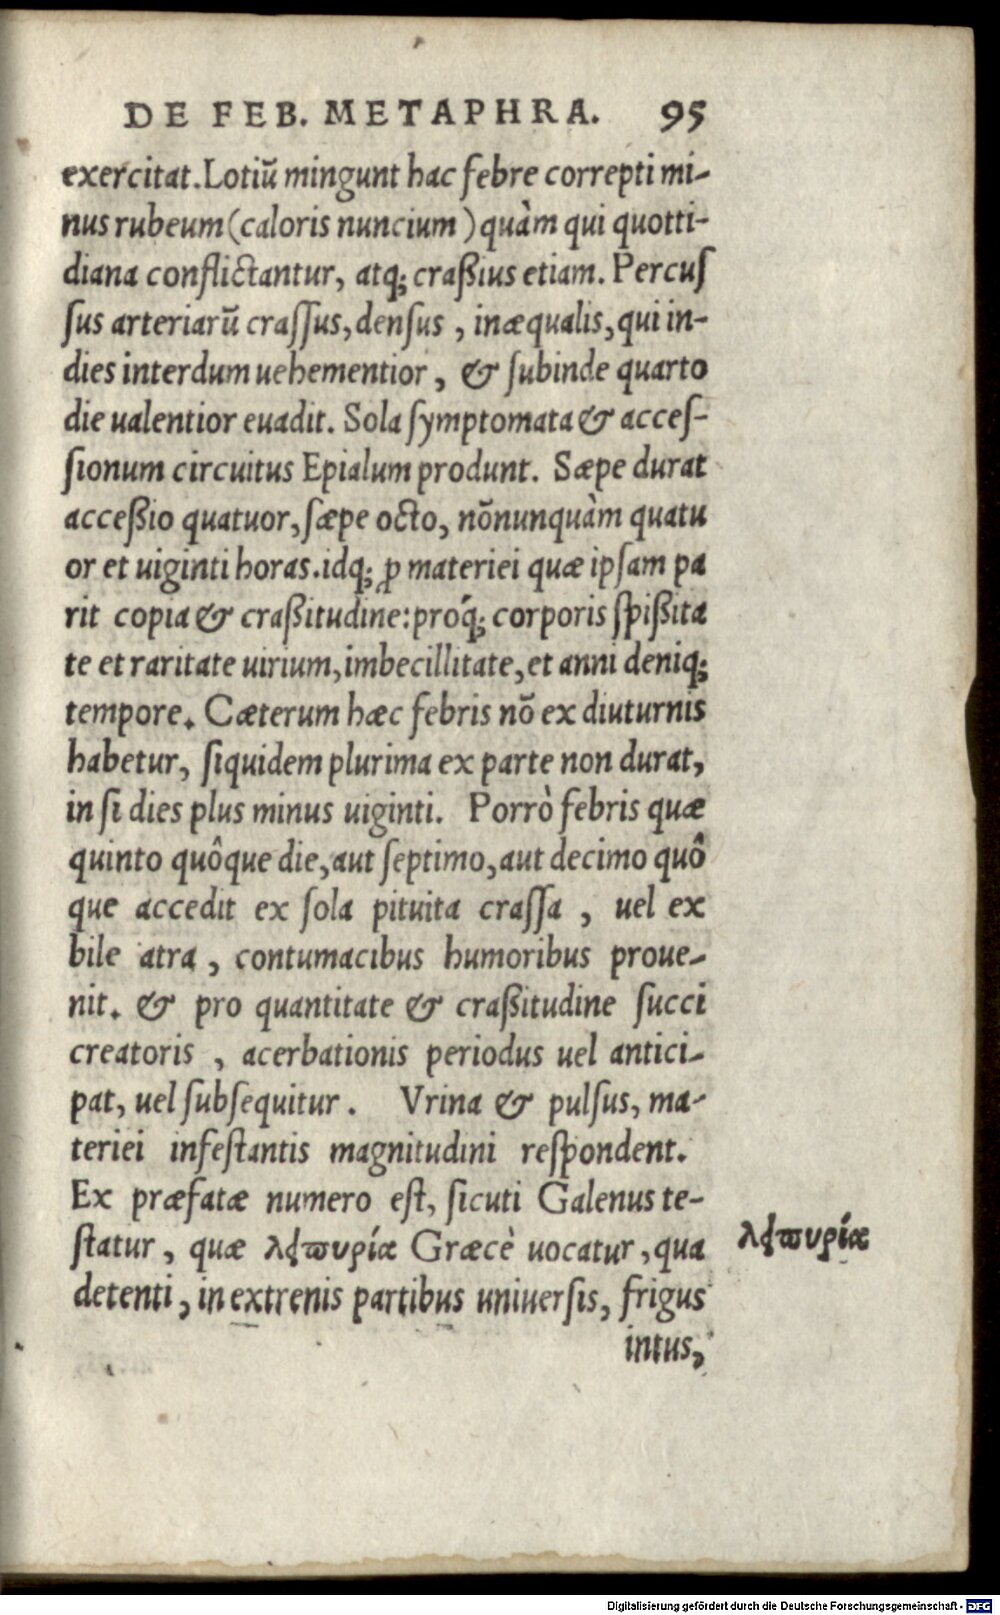 DE FEB. METAPHRA. 95
exercitat. Lotiū mingunt hac febre correpti mi-
nus rubeum (caloris nuncium) quàm qui quotti-
diana conflictantur, atq; craßius etiam. Percuſ
ſus arteriarū craſſus, denſus, inæqualis, qui in-
dies interdum uehementior, & ſubinde quarto
die ualentior euadit. Sola ſymptomata & acceſ-
ſionum circuitus Epialum produnt. Sæpe durat
acceßio quatuor, ſæpe octo, nōnunquàm quatu
or et uiginti horas. idq; ꝓ materiei quæ ipſam pa
rit copia & craßitudine: próq; corporis ſpißita
te et raritate uirium, imbecillitate, et anni deniq;
tempore. Cæterum hæc febris nō ex diuturnis
habetur, ſiquidem plurima ex parte non durat,
in ſi dies plus minus uiginti. Porrò febris quæ
quinto quôque die, aut ſeptimo, aut decimo quô
que accedit ex ſola pituita craſſa, uel ex
bile atra, contumacibus humoribus proue-
nit. & pro quantitate & craßitudine ſucci
creatoris, acerbationis periodus uel antici-
pat, uel ſubſequitur. Vrina & pulſus, ma-
teriei infeſtantis magnitudini reſpondent.
Ex præfatæ numero eſt, ſicuti Galenus te-
ſtatur, quæ ληϖυρία Græcè uocatur, qua
ληϖυρία
detenti, in extrenis partibus uniuerſis, frigus
intus,
Digitalisierung gefördert durch die Deutsche Forschungsgemeinschaft - DFG